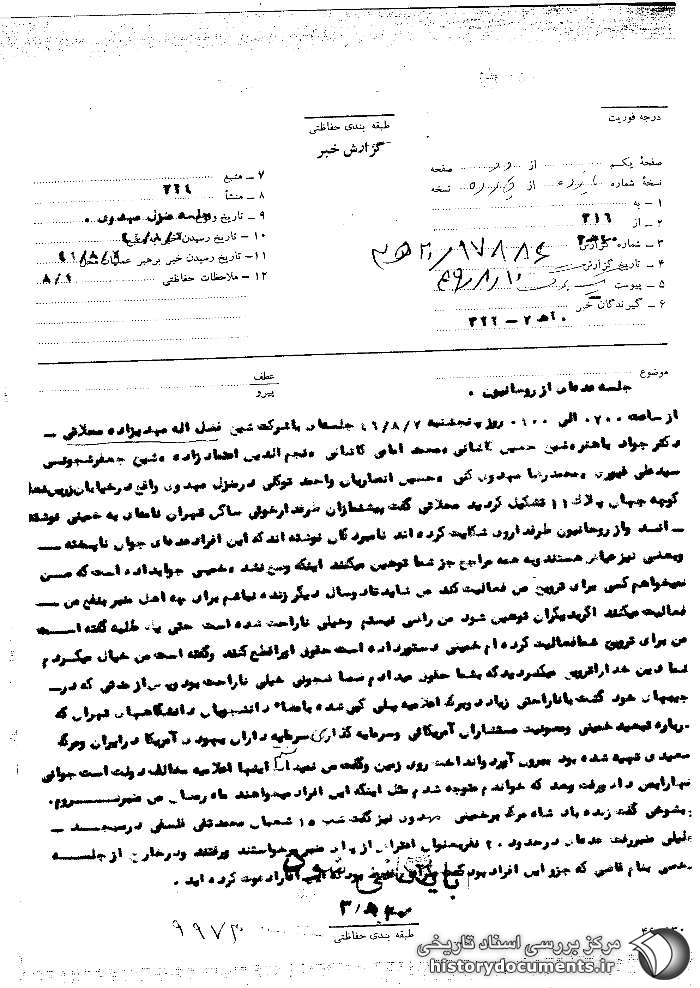 درجه فوریت
طبقه بندی حفاظتی
گزارش خبر
صفحهٔ یکم از دو صفحه
نسخهٔ شماره از نسخه
۱ - به
۲ - از ۳۱۶
۳ - شمارهٔ گزارش ۹۷۸۸۶ / ۲۰ ه ۳
۴ - تاریخ گزارش
۵ - پیوست
۶ - گیرندگان خبر
۲۰ ه ۲ - ۳۲۲
۷ - منبع
۸ - منشأ
۹ - تاریخ وقوع جلسه منزل مهدوی .
۱۰ - تاریخ رسیدن خبر به منبع
۱۱ - تاریخ رسیدن خبر برهبر عملیات محل
۱۲ - ملاحظات حفاظتی
موضوع
جلسه عده‌ای از روحانیون .
عطف
پیرو
از ساعت ۰۷۰۰ الی روز پنجشنبه ۴۶/۸/۷ جلسه‌ای باشرکت شیخ فضل اله مهدیزاده محلاتی -
دکتر جواد باهنر شیخ حسین کاشانی محمد امامی کاشانی نجم الدین اعتمادزاده شیخ جعفر شجونی
سیدعلی غیوری محمدرضا مهدوی کنی حسین انصاریان واحمد توکلی درمنزل مهدوی واقع درخیابان
کوچه جهان پلاک ۱۱ تشکیل گردید محلاتی گفت پیشنمازان طرفدار خوئی ساکن تهران نامه‌ای به خمینی نوشته
- اند و از روحانیون طرفدار او شکایت کرده اند نامبردگان نوشته اند که این افراد عده‌ای جوان ناپخته
وبعضی نیز هستند و به همه مراجع جز شما توهین میکنند خمینی جواب داده است که من
نمیخواهم کسی برای ترویج من فعالیت کند من شاید تا دو سال دیگر زنده نباشم برای چه اهل منبر بنفع من
فعالیت میکنند اگر بدیگران توهین شود من راضی نیستم وخیلی ناراحت شده است حتی یک طلبه گفته است
من برای ترویج شما فعالیت کرده ام خمینی دستور داده است حقوق اورا قطع کنند وگفته است من خیال میکردم
شما دین خدا را ترویج میکردید که بشما حقوق میدادم ضمنا شجونی خیلی ناراحت بود وپس از مدتی که در -
جیبهای خود گشت با ناراحتی زیاد دو برگ اعلامیه پلی کپی شده بامضاء دانشجویان دانشگاههای تهران که
درباره تبعید خمینی ومصونیت مستشاران آمریکائی وسرمایه گذاری سرمایه داران یهودی آمریکا در ایران ومرگ
سعیدی تهیه شده بود بیرون آورد و انداخت روی زمین وگفت من نمیدانم اینها اعلامیه مخالف دولت است جوانی
نهاربمن داد ورفت وبعد که خواندم متوجه شدم مثل اینکه این افراد میخواهند ماه رمضان من منبر نروم.
بشوخی گفت زنده باد شاه مرگ بر خمینی مهدوی نیز گفت شب ۱۵ شعبان محمدتقی فلسفی در مسجد -
منبر رفت عده‌ای درحدود ۲۰ نفر بعنوان اعتراض از پای منبر برخواستند ورفتند و در خارج از جلسه
بنام قاضی که جزو این افراد بود
بایگانی شود
۹۹۷۳
طبقه بندی حفاظتی
مرکز بررسی اسناد تاریخی
historydocuments.ir